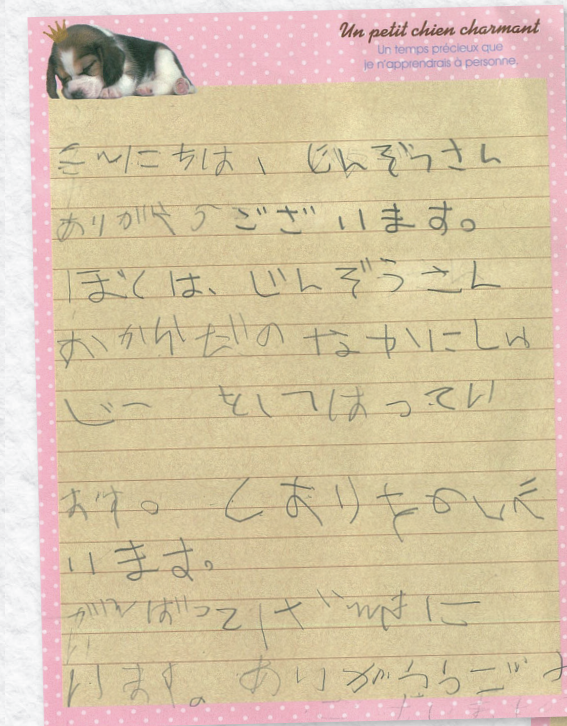 Un petit chien charmant
Un temps précieux que
je n'apprendrais à personne.
こんにちは、じんぞうさん
ありがとうございます。
ぼくは、じんぞうさん
おからだのなかにしゅ
じー をしてはってい
ます。 しおりを
います。
がんばって
います。 ありがとうござ